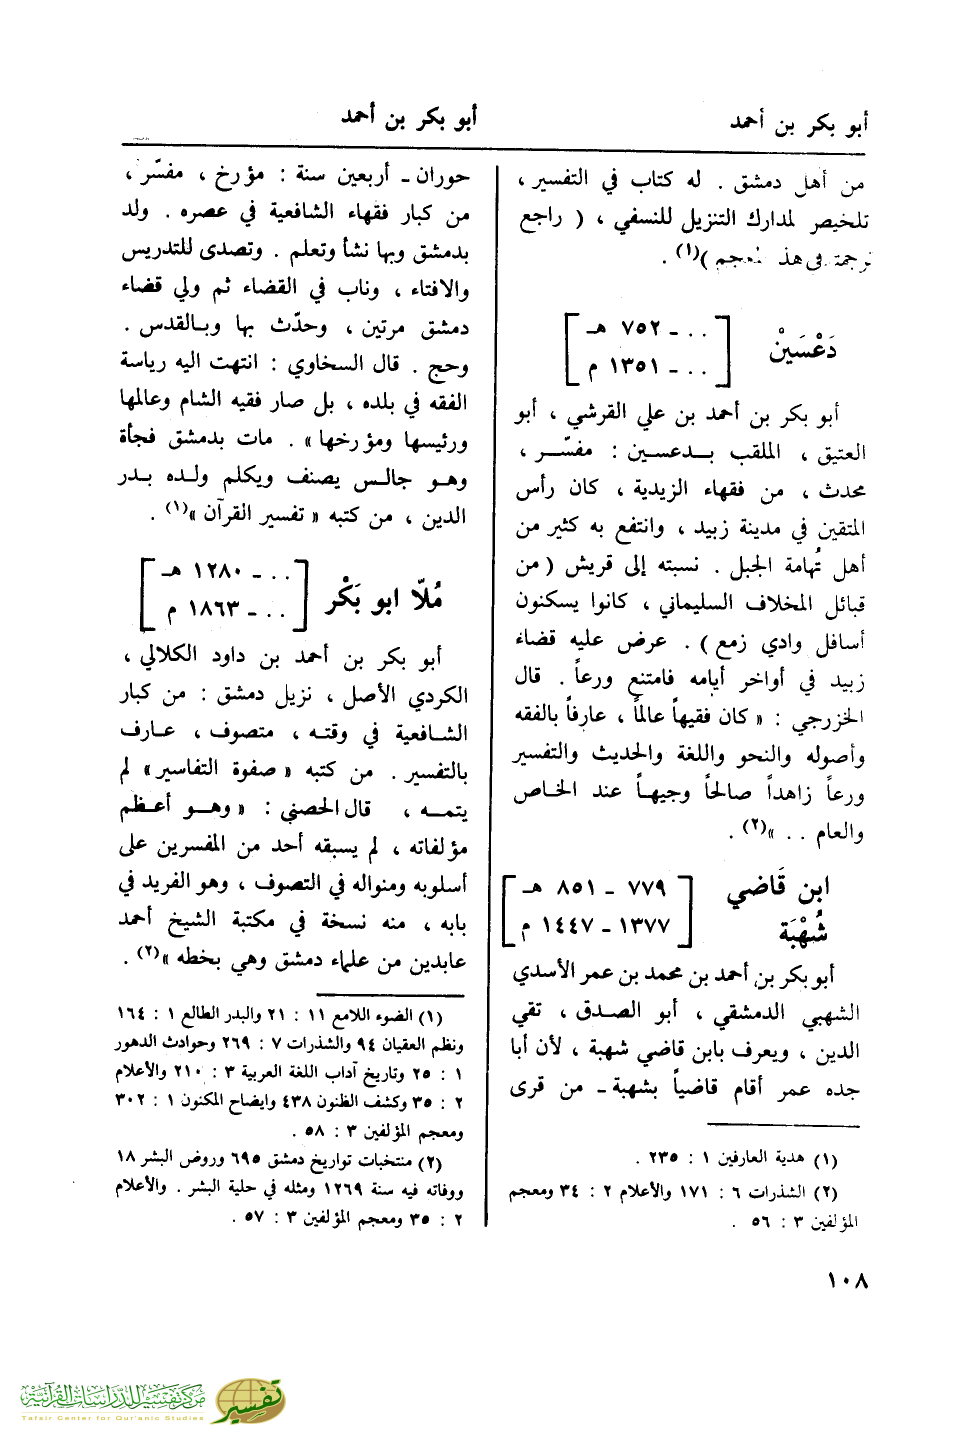 أبو بكر بن أحمد
أبو بكر بن أحمد
من أهل دمشق . له كتاب في التفسير ،
تلخيص لمدارك التنزيل للنسفي ، ( راجع
ترجمته في هذ المعجم )(١) .
دَعْسَيْنْ
[ . . ـ ٧٥٢ هـ ]
[ . . ـ ١٣٥١ م ]
أبو بكر بن أحمد بن علي القرشي ، أبو
العتيق ، الملقب بـدعسـين : مفسّـر ،
محدث ، من فقهاء الزيدية ، كان رأس
المتقين في مدينة زبيد ، وانتفع به كثير من
أهل تُهامة الجبل . نسبته إلى قريش ( من
قبائل المخلاف السليماني ، كانوا يسكنون
أسافل وادي زمع ) . عرض عليه قضاء
زبيد في أواخر أيامه فامتنع ورعاً . قال
الخزرجي : « كان فقيهاً عالماً ، عارفاً بالفقه
وأصوله والنحو واللغة والحديث والتفسير
ورعاً زاهداً صالحاً وجيهـاً عند الخاص
والعام . . »(٢) .
ابن قَاضي
شُهْبَة
[ ٧٧٩ ـ ٨٥١ هـ ]
[ ١٣٧٧ ـ ١٤٤٧ م ]
أبو بكر بن أحمد بن محمد بن عمر الأسدي
الشهبي الدمشقي ، أبو الصـدق ، تقي
الدين ، ويعرف بابن قاضي شهبة ، لأن أبا
جده عمر أقام قاضياً بشهبة ـ من قرى
(١) هدية العارفين ١ : ٢٣٥ .
(٢) الشذرات ٦ : ١٧١ والأعلام ٢ : ٣٤ ومعجم
المؤلفين ٣ : ٥٦ .
حوران ـ أربعين سنة : مؤرخ ، مفسّر ،
من كبار فقهاء الشافعية في عصره . ولد
بدمشق وبها نشأ وتعلم . وتصدى للتدريس
والافتاء ، وناب في القضاء ثم ولي قضاء
دمشق مرتين ، وحدّث بها وبـالقدس .
وحج . قال السخاوي : انتهت اليه رياسة
الفقه في بلده ، بل صار فقيه الشام وعالمها
ورئيسها ومؤرخها » . مات بدمشق فجأة
وهـو جالـس يصنف ويكلم ولـده بـدر
الدين ، من كتبه « تفسير القرآن »(١) .
مُلاّ ابو بَكْر
[ . . ـ ١٢٨٠ هـ ]
[ . . ـ ١٨٦٣ م ]
أبو بكر بن أحمد بن داود الكلالي ،
الكردي الأصل ، نزيل دمشق : من كبار
الشـافعية في وقتـه ، متصوف ، عـارف
بالتفسير . من كتبه « صفوة التفاسير » لم
يتمـه ، قال الحصني : « وهـو أعـظم
مؤلفاته ، لم يسبقه أحد من المفسرين على
أسلوبه ومنواله في التصوف ، وهو الفريد في
بابه ، منه نسخة في مكتبة الشيخ أحمد
عابدين من علماء دمشق وهي بخطه »(٢) .
(١) الضوء اللامع ١١ : ٢١ والبدر الطالع ١ : ١٦٤
ونظم العقيان ٩٤ والشذرات ٧ : ٢٦٩ وحوادث الدهور
١ : ٢٥ وتاريخ آداب اللغة العربية ٣ : ٢١٠ والأعلام
٢ : ٣٥ وكشف الظنون ٤٣٨ وايضاح المكنون ١ : ٣٠٢
ومعجم المؤلفين ٣ : ٥٨ .
(٢) منتخبات تواريخ دمشق ٦٩٥ وروض البشر ١٨
ووفاته فيه سنة ١٢٦٩ ومثله في حلية البشر . والأعلام
٢ : ٣٥ ومعجم المؤلفين ٣ : ٥٧ .
١٠٨
مركز تفسير للدراسات القرآنية
Tafsir Center for Qur'anic Studies
تفسير